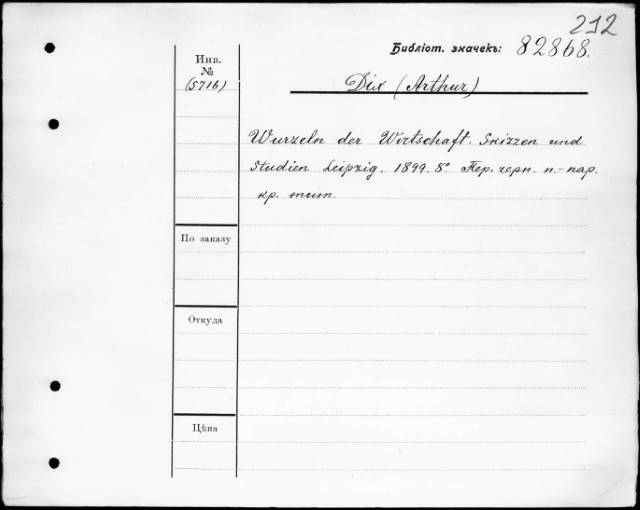 212
Библіот. значекъ: 82868.
Инв.
№
(5716)
Dix (Arthur)
Wurzeln der Wirtschaft. Skizzen und
Studien Leipzig. 1899. 8° Пер. черн. п.-пар.
кр. тит.
По заказу
Откуда
Цѣна